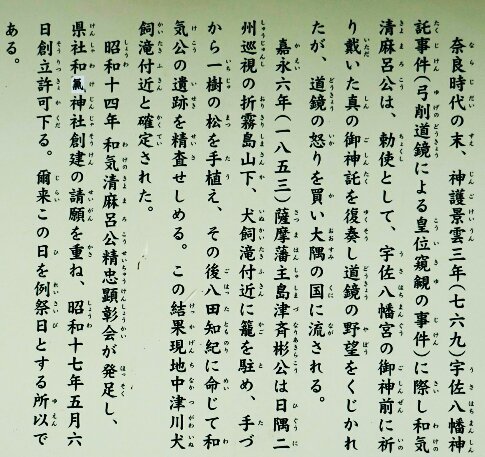 奈良時代の末、神護景雲三年(七六九)宇佐八幡神
託事件(弓削道鏡による皇位窺覦の事件)に際し和気
清麻呂公は、勅使として、宇佐八幡宮の御神前に祈
り戴いた真の御神託を復奏し道鏡の野望をくじかれ
たが、道鏡の怒りを買い大隅の国に流される。
嘉永六年(一八五三)薩摩藩主島津斉彬公は日隅二
州巡視の折霧島山下、犬飼滝付近に籠を駐め、手づ
から一樹の松を手植え、その後八田知紀に命じて和
気公の遺跡を精査せしめる。この結果現地中津川犬
飼滝付近と確定された。
昭和十四年和気清麻呂公精忠顕彰会が発足し、
県社和氣神社創建の請願を重ね、昭和十七年五月六
日創立許可下る。爾来この日を例祭日とする所以で
ある。